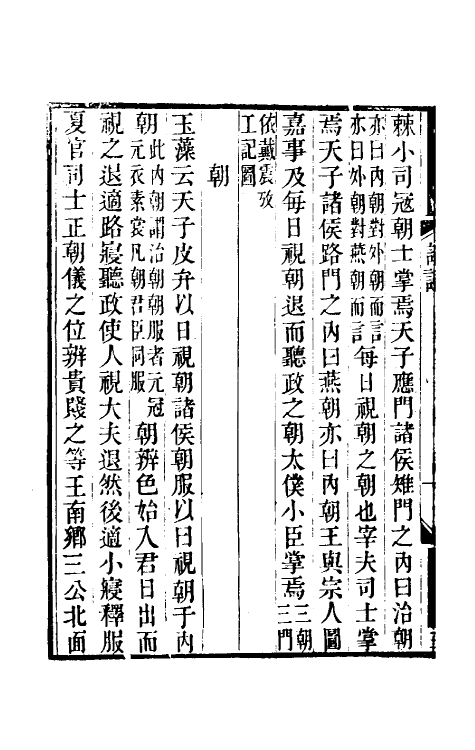 棘小司寇朝士掌焉天子應門諸侯雉門之內曰治朝
亦曰內朝對外朝而言
亦曰外朝對燕朝而言
每日視朝之朝也宰夫司士掌
焉天子諸侯路門之內曰燕朝亦曰內朝王與宗人圖
嘉事及每日視朝退而聽政之朝太僕小臣掌焉
三朝
三門
依戴震攷
工記圖
朝
玉藻云天子皮弁以日視朝諸侯朝服以日視朝于內
朝
此內朝謂治朝朝服者元冠
元衣素裳凡朝君臣同服
朝辨色始入君日出而
視之退適路寢聽政使人視大夫退然後適小寢釋服
夏官司士正朝儀之位辨貴賤之等王南鄉三公北面